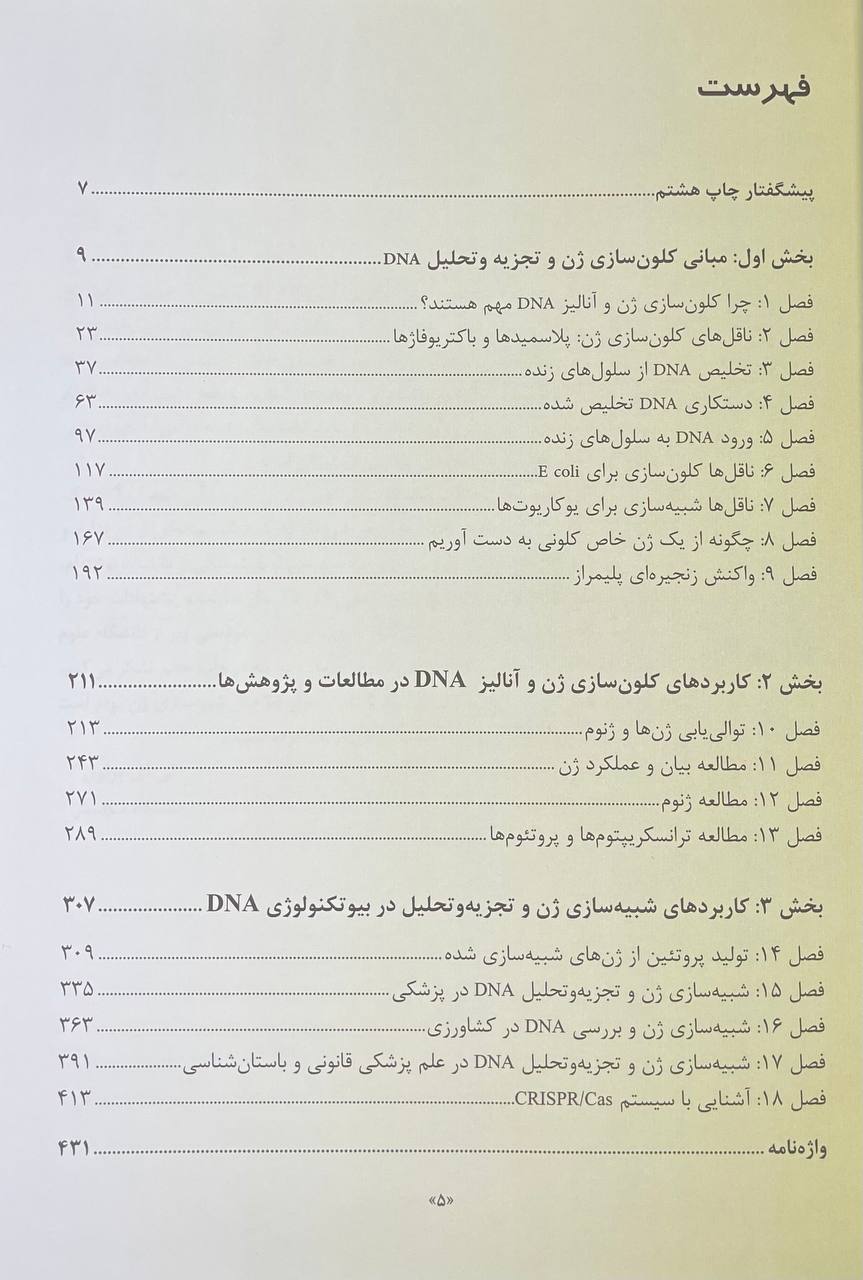 فهرست
پیشگفتار چاپ هشتم ........ ۷
بخش اول: مبانی کلون‌سازی ژن و تجزیه وتحلیل DNA ........ ۹
فصل ۱: چرا کلون‌سازی ژن و آنالیز DNA مهم هستند؟ ........ ۱۱
فصل ۲: ناقل‌های کلون‌سازی ژن: پلاسمیدها و باکتریوفاژها ........ ۲۳
فصل ۳: تخلیص DNA از سلول‌های زنده ........ ۳۷
فصل ۴: دستکاری DNA تخلیص شده ........ ۶۳
فصل ۵: ورود DNA به سلول‌های زنده ........ ۹۷
فصل ۶: ناقل‌ها کلون‌سازی برای E coli ........ ۱۱۷
فصل ۷: ناقل‌ها شبیه‌سازی برای یوکاریوت‌ها ........ ۱۳۹
فصل ۸: چگونه از یک ژن خاص کلونی به دست آوریم ........ ۱۶۷
فصل ۹: واکنش زنجیره‌ای پلیمراز ........ ۱۹۲
بخش ۲: کاربردهای کلون‌سازی ژن و آنالیز DNA در مطالعات و پژوهش‌ها ........ ۲۱۱
فصل ۱۰: توالی‌یابی ژن‌ها و ژنوم ........ ۲۱۳
فصل ۱۱: مطالعه بیان و عملکرد ژن ........ ۲۴۳
فصل ۱۲: مطالعه ژنوم ........ ۲۷۱
فصل ۱۳: مطالعه ترانسکریپتوم‌ها و پروتئوم‌ها ........ ۲۸۹
بخش ۳: کاربردهای شبیه‌سازی ژن و تجزیه‌وتحلیل در بیوتکنولوژی DNA ........ ۳۰۷
فصل ۱۴: تولید پروتئین از ژن‌های شبیه‌سازی شده ........ ۳۰۹
فصل ۱۵: شبیه‌سازی ژن و تجزیه‌وتحلیل DNA در پزشکی ........ ۳۳۵
فصل ۱۶: شبیه‌سازی ژن و بررسی DNA در کشاورزی ........ ۳۶۳
فصل ۱۷: شبیه‌سازی ژن و تجزیه‌وتحلیل DNA در علم پزشکی قانونی و باستان‌شناسی ........ ۳۹۱
فصل ۱۸: آشنایی با سیستم CRISPR/Cas ........ ۴۱۳
واژه‌نامه ........ ۴۳۱
«۵»